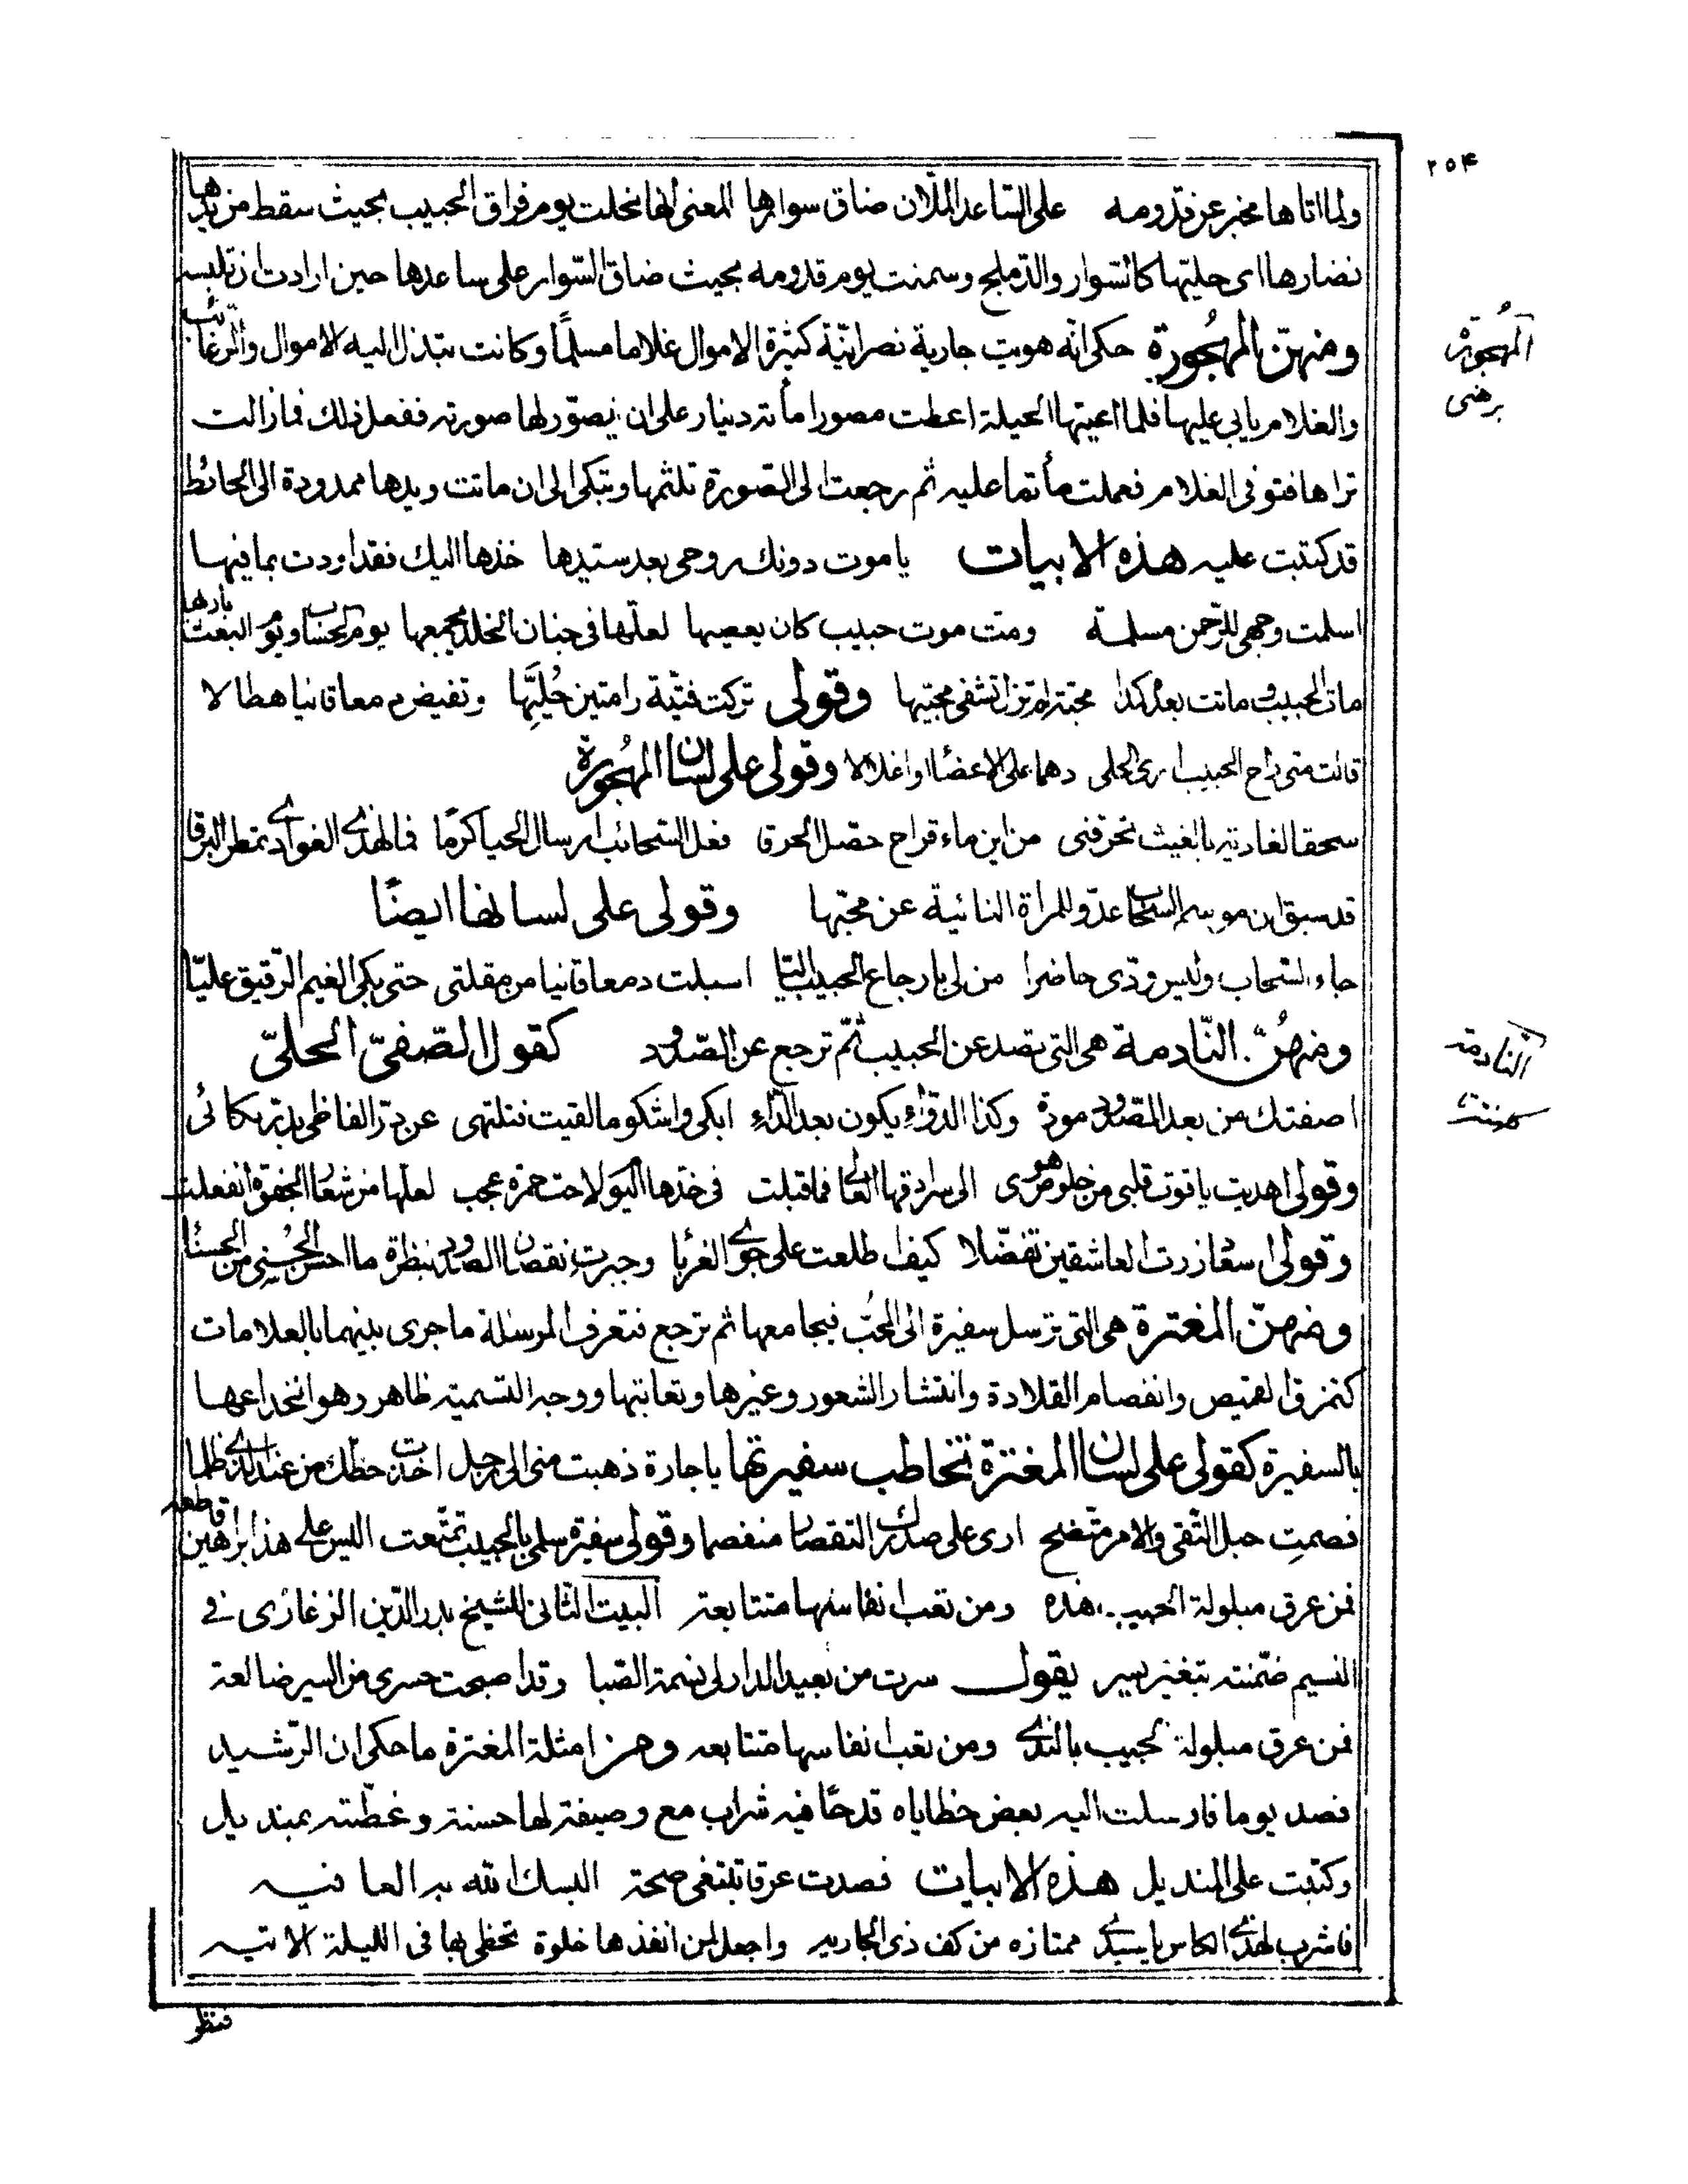 ٢٥٤
ولما اتاها مخبر عن قدومه على الساعد الملآن ضاق سوارها المعنى انها نحلت يوم فراق الحبيب بحيث سقط من يدها
نضارها اى حليتها كالسوار والدملج وسمنت يوم قدومه بحيث ضاق السوار على ساعدها حين ارادت ان تلبسه
ومنهنّ المهجورة حكى انه هويت جارية نصرانيّة كثيرة الاموال غلاما مسلمًا وكانت تبذل اليه الاموال والرغائب
المهجورة
برهنى
والغلام يابى عليها فلما اعيتها الحيلة اعطت مصورا مأته دينار على ان يصوّر لها صورته ففعل ذلك فما زالت
تراها فتوفى الغلام فعملت مأتما عليه ثم رجعت الى الصورة تلثمها وتبكى الى ان ماتت ويدها ممدودة الى الحائط
قد كتبت عليه هذه الابيات ياموت دونك روحى بعد سيدها خذها اليك فقد اودت بما فيها
اسلمت وجهى للرّحمن مسلمة ومت موت حبيب كان يعصيها لعلها فى جنان الخلد يجمعها يوم الحساب ويوم البعث باريها
مات الحبيب وماتت بعده كمدا محبّة لم تزل تشفى محبّيها وقولى تركت فتيّة رامتين حليّها وتفيض دمعا قانيا هطالا
قالت متى راح الحبيب ارى الحلى دهما على الاعضا او اغلالا وقولى على لسان المهجورة
سحقا لغادية بالغيث تحرقنى من اين ماء قراح حصّل الحرقا فعل السحائب ارسال الحيا كرمًا فما لهذى الغوادى تمطر البرقا
قد سبق ان موسم السحاب عدو للمراة النائية عن محبّها وقولى على لسانها ايضًا
جاء السحاب وليس ودّى حاضرا من لى بارجاع الحبيب اليّا اسبلت دمعا قانيا من مقلتى حتى بكى الغيم الرّقيق عليّا
ومنهنّ النّادمة هى التى تصد عن الحبيب ثمّ ترجع عن الصدود كقول الصفىّ الحلىّ
النادمة
اصفتك من بعد الصدود مودة وكذا الدّواء يكون بعد الدّاء ابكى واشكو ما لقيت فتلتهى عن درّ الفاظى بدرّ بكائى
وقولى اهديت ياقوت قلبى من خلوص هوى الى سرادقها العالى فما قبلت فى خدّها اليوم لاحت حمرة عجب لعلها من شعار الجفوة انفعلت
وقولى اسعاد زرت العاشقين تفضّلا كيف اطلعت على جوى الغربا وجبرت نقصان الصدود بنظرة ما احسن الحسنى من الحسنا
ومنهنّ المغترة هى التى ترسل سفيرة الى المحبّ فيجامعها ثم ترجع فتعرف المرسلة ماجرى بينهما بالعلامات
كتمزق القميص وانفصام القلادة وانتشار الشعور وغيرها وتعاتبها ووجه التسمية ظاهر وهو انخداعها
بالسفيرة كقولى على لسان المغترة تخاطب سفيرتها ياجارة ذهبت منى الى رجل اخذت حظك من عند الذى ظلما
فصمت حبل التقى والامر متضح ارى على صدرك التقصار منفصما وقولى سفيرة سلمى بالحبيب تمتّعت اليس على هذا براهين قاطعه
فمن عرق مبلولة الجيب هذه ومن تعب انفاسها متتابعة البيت الثانى للشيخ بدر الدّين الزغارى فى
النسيم ضمّنته بتغير يسير يقول سرت من بعيد الدار لى نسمة الصبا وقد اصبحت حسرى من السير ضالعة
فمن عرق مبلولة الجيب بالندى ومن تعب انفاسها متتابعه ومن امثلة المغترة ماحكى ان الرّشيد
فصد يوما فارسلت اليه بعض حظاياه قدحًا فيه شراب مع وصيفة لها حسنة وغطّته بمنديل
وكتبت على المنديل هذه الابيات فصدت عرقا تبتغى صحة البسك الله به العافيه
فاشرب لهذى الكاس ياسيدى ممتازه من كف ذى الجاريه واجعل لمن انفذها خلوة تحظى بها فى الليلة الاتيه
فنظر